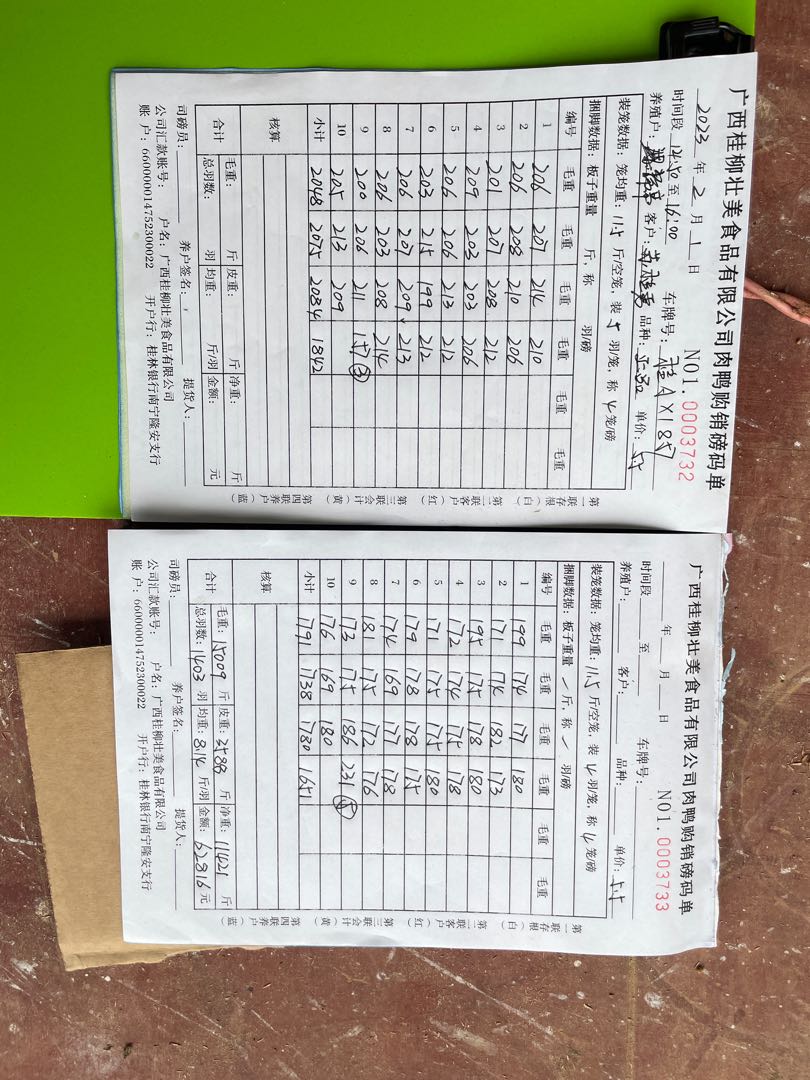 广西桂柳壮美食品有限公司肉鸭购销磅码单
NO1.0003732
2023年2月1日
时间段 12:50至16:00 车牌号：桂AX1857
养殖户： 客户： 品种： 单价：5.5
装笼数据：笼均重：11.5斤/空笼，装5羽/笼，称4笼/磅
捆脚数据：板子重量 斤，称 羽/磅
编号 毛重 毛重 毛重 毛重 毛重 毛重
1 206 207 214 210
2 206 208 210 206
3 201 207 208 212
4 209 203 203 206
5 206 206 213 212
6 203 215 199 212
7 206 207 209 213
8 206 203 208 214
9 200 206 211 157 ③
10 205 213 209
小计 2048 2075 2084 1842
核算
合计 毛重： 斤 皮重： 斤 净重： 斤
总羽数： 羽 均重： 斤/羽 金额： 元
司磅员： 养户签名： 提货人：
公司汇款账号： 户名：广西桂柳壮美食品有限公司
账 户：660000014752300022 开户行：桂林银行南宁隆安支行
第一联存根（白） 第二联客户（红） 第三联会计（黄） 第四联养户（蓝）
广西桂柳壮美食品有限公司肉鸭购销磅码单
NO1.0003733
年 月 日
时间段 至 车牌号：
养殖户： 客户： 品种： 单价：5.5
装笼数据：笼均重：11.5斤/空笼，装4羽/笼，称4笼/磅
捆脚数据：板子重量 / 斤，称 / 羽/磅
编号 毛重 毛重 毛重 毛重 毛重 毛重
1 199 174 177 180
2 171 174 182 173
3 195 175 178 180
4 172 174 175 178
5 171 175 175 180
6 179 178 178 175
7 174 169 177 178
8 181 175 172 176
9 173 175 186 231 ⑤
10 176 169 180
小计 1791 1738 1780 1651
核算
合计 毛重：15009 斤 皮重：3588 斤 净重：11421 斤
总羽数：1403 羽 均重：8.14 斤/羽 金额：62816 元
司磅员： 养户签名： 提货人：
公司汇款账号： 户名：广西桂柳壮美食品有限公司
账 户：660000014752300022 开户行：桂林银行南宁隆安支行
第一联存根（白） 第二联客户（红） 第三联会计（黄） 第四联养户（蓝）